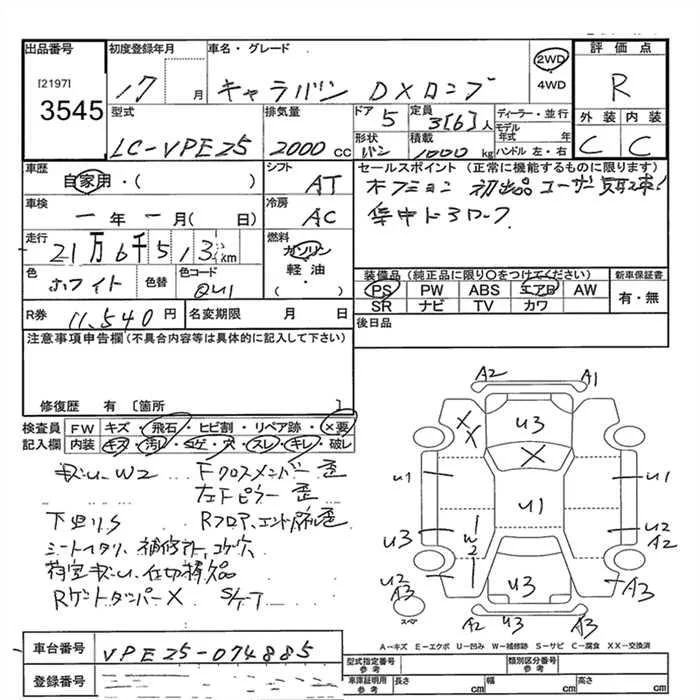 出品番号
[2197]
3545
初度登録年月
17 月
車名・グレード
キャラバン DXロング
2WD
4WD
評価点
R
型式
LC-VPE25
排気量
2000 CC
ドア
5
定員
3[6]人
ディーラー・並行
モデル年式 年
形状
バン
積載
1000 kg
ハンドル 左・右
外装 内装
C C
車歴
自家用・( )
シフト
AT
セールスポイント (正常に機能するものに限ります)
オプション 初出品 ユーザー買取車!
集中ドアロック
車検
一年一月( 日)
冷房
AC
走行
21万6千513km
燃料
ガソリン
軽油・
( )
色
ホワイト
色替
色コード
QU1
装備品(純正品に限り○をつけてください)
PS PW ABS エアB AW
SR ナビ TV カワ
新車保証書
有・無
R券
11,540 円
名変期限 月 日
後日品
注意事項申告欄(不具合内容等は具体的に記入して下さい)
修復歴 有 [箇所 ]
検査員
記入欄
FW キズ・飛石・ヒビ割・リペア跡・×要
内装 キズ・汚レ・コゲ・穴・スレ・キレ・破レ
W2 Fクロスメンバー歪
左Fピラー歪
下回りS Rフロア、エンドパネル歪
シートヘタリ、補修跡、コゲ穴
荷室 仕切棒欠品
Rゲートダンパー× S/ケT
A2 A1
U3
XX
X
U1 U1 U1
U3 W2 U2 A2
U2 A3 U3 A3
A2 A3
スペア
A-キズ E-エクボ U-凹み W-補修跡 S-サビ C-腐食 XX-交換済
車台番号
VPE25-074885
登録番号
型式指定番号
参考
類別区分番号
参考
車庫証明用
参考
長さ cm 幅 cm 高さ cm